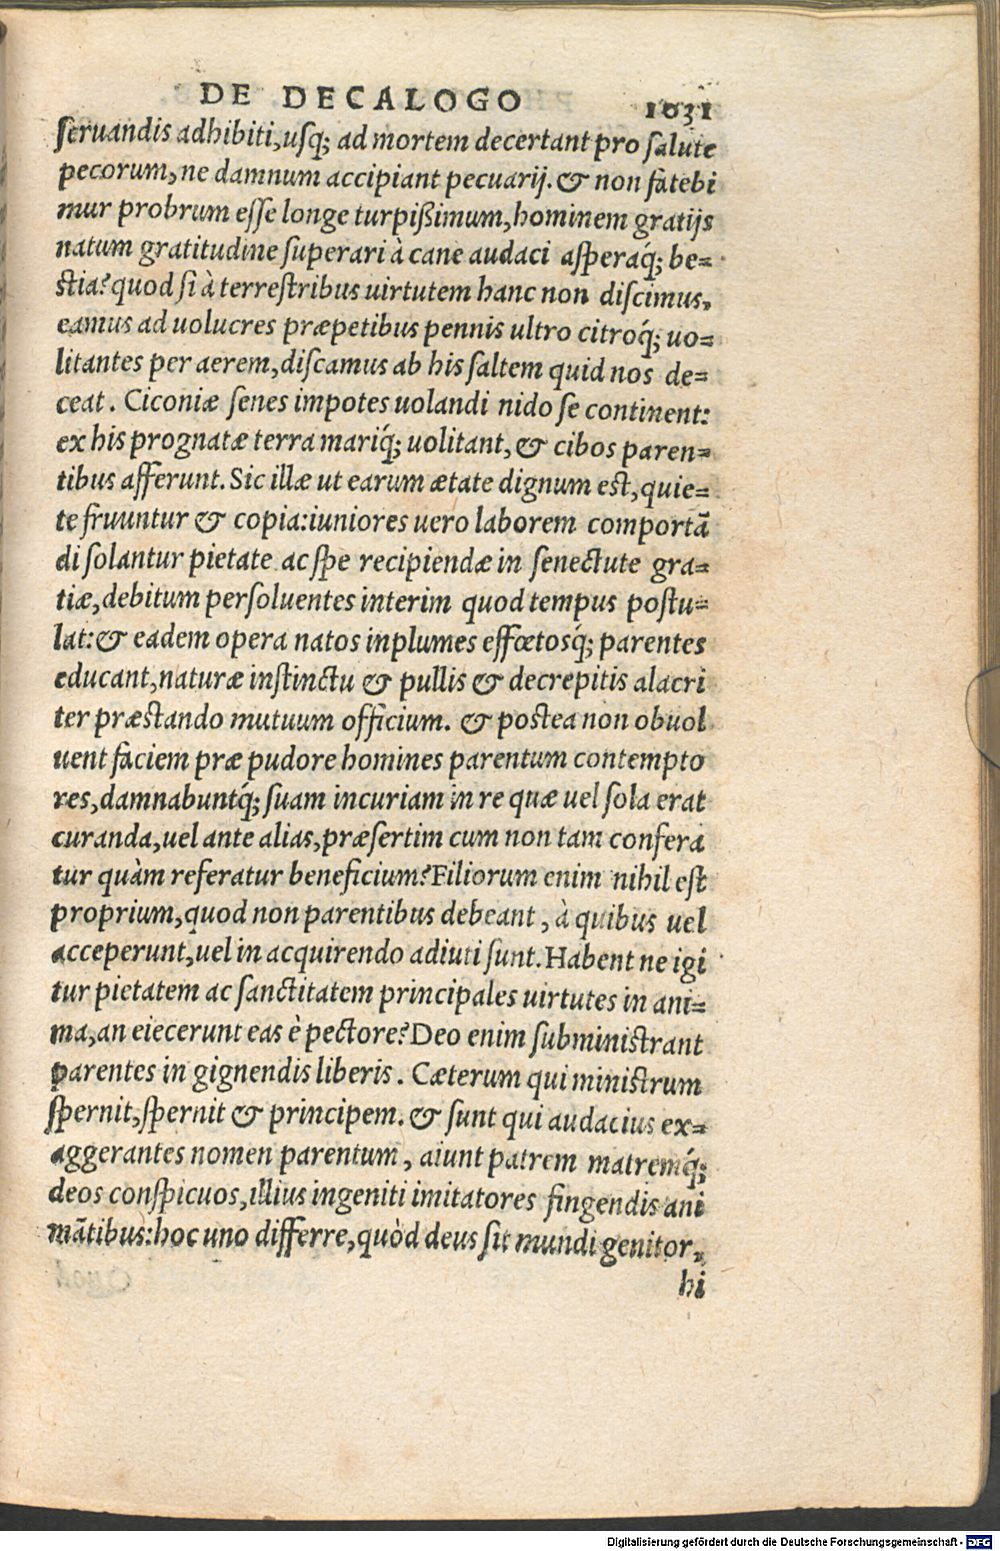 DE DECALOGO 1031
ſeruandis adhibiti,uſq́; ad mortem decertant pro ſalute
pecorum,ne damnum accipiant pecuarij. & non fatebi
mur probrum eſſe longe turpißimum,hominem gratijs
natum gratitudine ſuperari à cane audaci aſperaq́; be=
ſtia? quod ſi à terreſtribus uirtutem hanc non diſcimus,
eamus ad uolucres præpetibus pennis ultro citroq́; uo=
litantes per aerem,diſcamus ab his ſaltem quid nos de=
ceat. Ciconiæ ſenes impotes uolandi nido ſe continent:
ex his prognatæ terra mariq́; uolitant, & cibos paren=
tibus afferunt. Sic illæ ut earum ætate dignum est,quie=
te fruuntur & copia:iuniores uero laborem comportā
di ſolantur pietate ac ſpe recipiendæ in ſenectute gra=
tiæ,debitum perſoluentes interim quod tempus poſtu=
lat: & eadem opera natos inplumes effœtosq́; parentes
educant,naturæ inſtinctu & pullis & decrepitis alacri
ter præſtando mutuum officium. & poſtea non obuol
uent faciem præ pudore homines parentum contempto
res,damnabuntq́; ſuam incuriam in re quæ uel ſola erat
curanda,uel ante alias,præſertim cum non tam confera
tur quàm referatur beneficium? Filiorum enim nihil eſt
proprium,quod non parentibus debeant, à quibus uel
acceperunt,uel in acquirendo adiuti ſunt. Habent ne igi
tur pietatem ac ſanctitatem principales uirtutes in ani=
ma,an eiecerunt eas è pectore? Deo enim ſubminiſtrant
parentes in gignendis liberis. Cæterum qui miniſtrum
ſpernit,ſpernit & principem. & ſunt qui audacius ex=
aggerantes nomen parentum, aiunt patrem matremq́;
deos conſpicuos,illius ingeniti imitatores fingendis ani
mātibus:hoc uno differre,quòd deus ſit mundi genitor,
hi
Digitalisierung gefördert durch die Deutsche Forschungsgemeinschaft - DFG